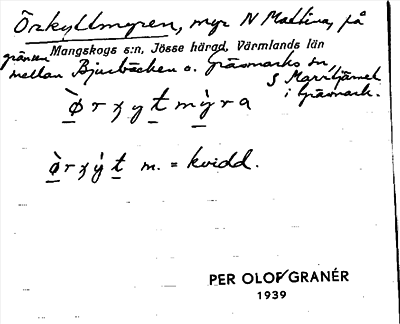 Örkyttmyren, myr N Mattina, på
gränsen Mangskogs s:n, Jösse härad, Värmlands län
mellan Bjurbäcken o. Gräsmarks sn,
S Marrtjärnet
i Gräsmark.
ø̀rxyt mỳra
ø̀rxỳt m. = kvidd.
PER OLOF GRANÉR
1939